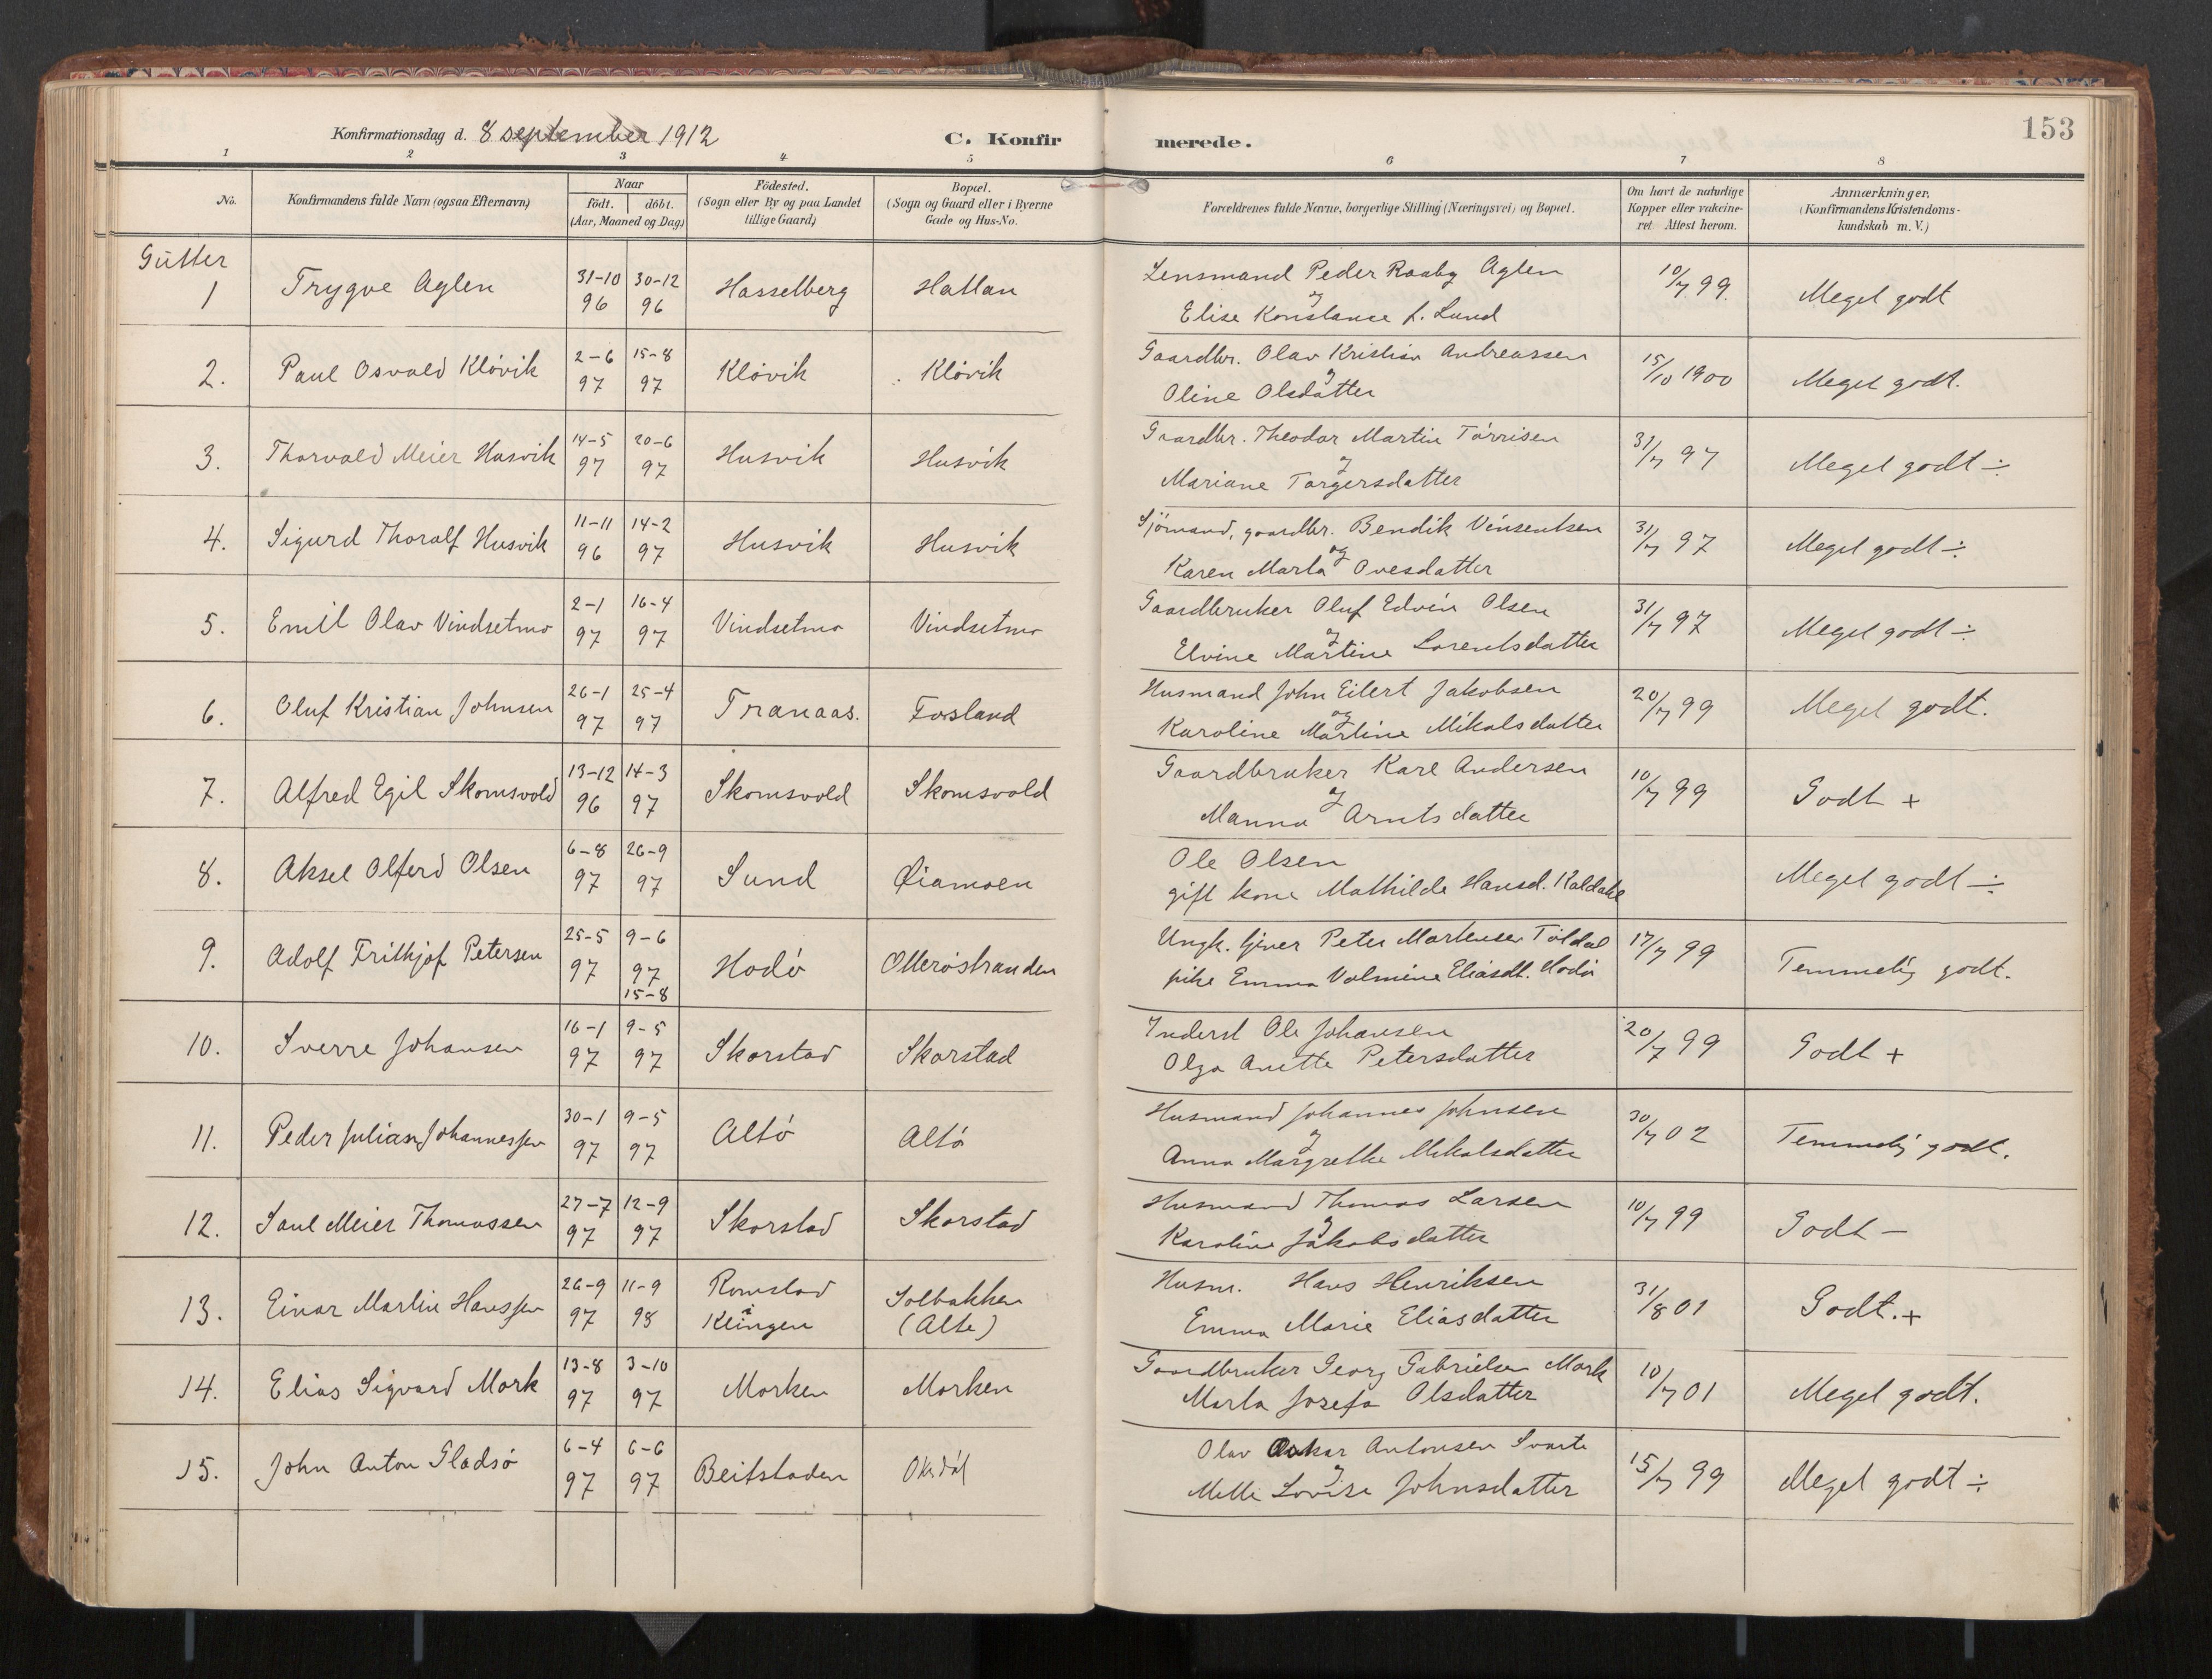 Konfirmationsdag d. 8 september 1912
C. Konfirmerede.
153
1 2 3 4 5 6 7 8
No.
Konfirmandens fulde Navn (ogsaa Efternavn)
Naar
födt. | döbt.
(Aar, Maaned og Dag)
Födested.
(Sogn eller By og paa Landet
tillige Gaard)
Bopæl.
(Sogn og Gaard eller i Byerne
Gade og Hus-No.
Forældrenes fulde Navne, borgerlige Stilling (Næringsvei) og Bopæl.
Om havt de naturlige
Kopper eller vakcine-
ret Attest herom.
Anmærkninger.
(Konfirmandens Kristendoms-
kundskab m. V.)
Gutter
1 Trygve Aglen 31-10 96 30-12 96 Hasselberg Hatlan
Lensmand Peder Raaby Aglen
og
Elise Konstance f. Lund
10/7 99. Meget godt
2. Paul Osvald Klövik 2-6 97 15-8 97 Klövik Klövik
Gaardbr. Olav Kristian Andreassen
og
Oline Olsdatter
15/10 1900 Meget godt.
3. Thorvald Meier Husvik 14-5 97 20-6 97 Husvik Husvik
Gaardbr. Theodor Martin Törrisen
og
Mariane Torgersdatter
31/7 97 Meget godt ÷
4. Sigurd Thoralf Husvik 11-11 96 14-2 97 Husvik Husvik
Sjömand, gaardbr. Bendik Vinsentsen
og
Karen Marta Ovesdatter
31/7 97 Meget godt ÷
5. Emil Olav Vindsetmo 2-1 97 16-4 97 Vindsetmo Vindsetmo
Gaardbruker Oluf Edvin Olsen
og
Elvine Martine Lorentsdatter
31/7 97 Meget godt ÷
6. Oluf Kristian Johnsen 26-1 97 25-4 97 Tranaas. Fosland
Husmand John Eilert Jakobsen
og
Karoline Martine Mikalsdatter
20/7 99 Meget godt.
7. Alfred Egil Skomsvold 13-12 96 14-3 97 Skomsvold Skomsvold
Gaardbruker Karl Andersen
og
Manna Arntsdatter
10/7 99 Godt +
8. Aksel Olferd Olsen 6-8 97 26-9 97 Sund Øiamoen
Ole Olsen
gift kone Mathilde Hansd. Kaldahl
Meget godt ÷
9. Adolf Frithjof Petersen 25-5 97 9-6 97 15-8 Hodö Otteröstranden
Ungk. tjener Peter Martensen Töldal
pike Emma Valmine Eliasdt. Hodö
17/7 99 Temmelig godt.
10. Sverre Johansen 16-1 97 9-5 97 Skorstad Skorstad
Inderst Ole Johansen
Olga Anette Petersdatter
20/7 99 Godt +
11. Peder Julian Johannessen 30-1 97 9-5 97 Altö Altö
Husmand Johannes Johnsen
og
Anna Margrethe Mikalsdatter
30/7 02 Temmelig godt.
12. Saul Meier Thomassen 27-7 97 12-9 97 Skorstad Skorstad
Husmand Thomas Larsen
og
Karoline Jakobsdatter
10/7 99 Godt –
13. Einar Martin Hanssen 26-9 97 11-9 98 Romstad i Klingen Solbakken (Alte)
Husm. Hans Henriksen
Emma Marie Eliasdatter
31/8 01 Godt. +
14. Elias Sigvard Mork 13-8 97 3-10 97 Morken Morken
Gaardbruker Georg Gabrielsen Mork
Marta Josefa Olsdatter
10/7 01 Meget godt.
15. John Anton Gladsö 6-4 97 6-6 97 Beitstaden
Olav Oskar Antonsen Svarte
og
Lovise Johnsdatter
15/7 99 Meget godt ÷